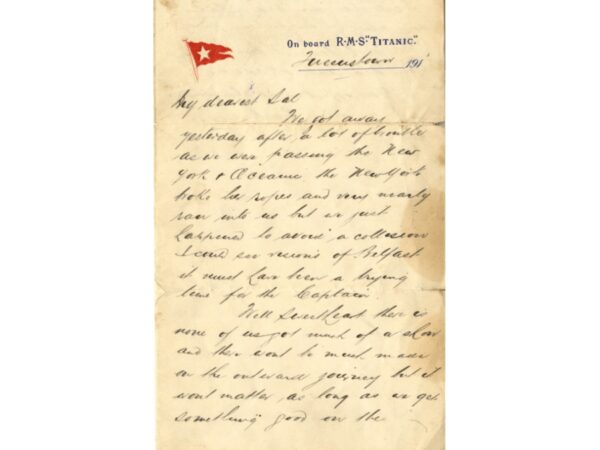 On board R·M·S "TITANIC."
Queenstown 191
My dearest Sid
We got away
yesterday after a lot of trouble
as we were passing the New
York & Oceanic the New York
broke her ropes and very nearly
ran into us but we just
happened to avoid a collision
I could see visions of Belfast
it must have been a trying
time for the Captain.
Well Sweetheart there is
none of us got much of a show
and there wont be much made
on the outward journey but it
wont matter as long as we get
something good on the